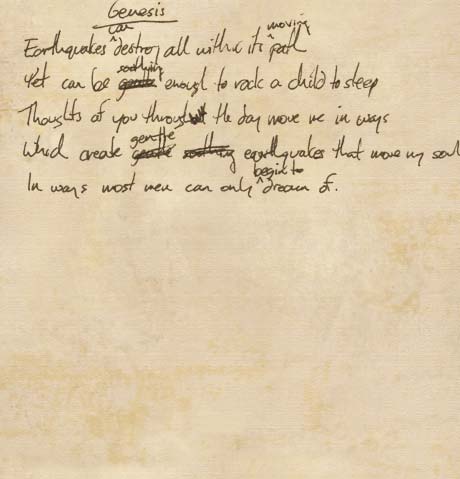 Genesis
Earthquakes can destroy all within its moving path
Yet can be soothing enough to rock a child to sleep
Thoughts of you throughout the day move me in ways
Which create gentle earthquakes that move my soul
In ways most men can only begin to dream of.